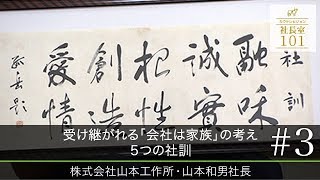 社長室
101
社訓
融和
誠實
根性
創造
愛情
受け継がれる「会社は家族」の考え
5つの社訓
#3
株式会社山本工作所・山本和男社長